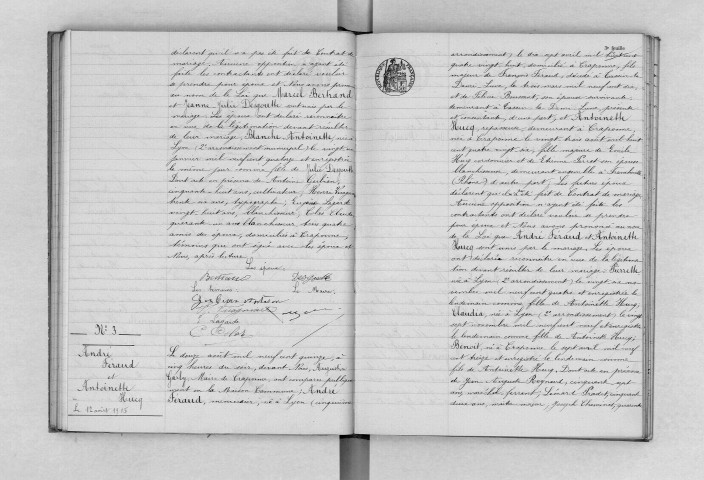 déclarent qu'il n'a pas été fait de Contrat de
mariage. Aucune opposition n'ayant été
faite les contractants ont déclaré vouloir
se prendre pour époux et Nous avons prononcé
au nom de la Loi que Marcel Bertrand
et Jeanne Julie Degoutte sont unis par le
mariage. Les époux ont déclaré reconnaître
en vue de la légitimation devant résulter
de leur mariage, Blanche Antoinette, née
à Lyon (2e arrondissement municipal) le vingt
janvier mil neuf cent quatorze et enregistrée
le même jour comme fille de Julie Degoutte
Dont acte en présence de Antoine
cinquante huit ans, cultivateur,
trente six ans, typographe, Eugène Lagarde
vingt huit ans, blanchisseur,
quarante six ans blanchisseur, tous quatre
amis des époux, domiciliés à Craponne,
témoins qui ont signé avec les époux et
Nous, après lecture.
Les époux,
Bertrand Degoutte
Les témoins Le Maire
Lagarde
N° 3
André
Féraud
et
Antoinette
Hucq
Le 12 août 1915
Le douze août mil neuf cent quinze, à
cinq heures du soir, devant Nous,
Maire de Craponne, ont comparu publique-
ment en la Maison Commune: André
Féraud, né à Lyon (cinquième
3e feuille
arrondissement) le dix sept avril mil huit cent
quatre vingt huit, domicilié à Craponne, fils
majeur de François Féraud, décédé à
le trois mars mil neuf cent dix,
et de Bonnet, son épouse survivante,
demeurant à
et consentante, d'une part, et Antoinette
Hucq, repasseuse, demeurant à Craponne,
née à Craponne le vingt deux août mil huit
cent quatre vingt six, fille majeure de
Hucq cordonnier et de son épouse
blanchisseuse, demeurant ensemble à Francheville
(Rhône) d'autre part; Les futurs époux
déclarent qu'il n'a été fait de Contrat de mariage
Aucune opposition n'ayant été faite les
contractants ont déclaré vouloir se prendre
pour époux et Nous avons prononcé au nom
de la Loi que André Féraud et Antoinette
Hucq sont unis par le mariage. Les époux
ont déclaré reconnaître en vue de la légitima-
tion devant résulter de leur mariage: Pierrette
née à Lyon (2e arrondissement) le vingt six no-
vembre mil neuf cent quatre et enregistrée le
lendemain comme fille de Antoinette Hucq,
Claudia, née à Lyon (2e arrondissement) le vingt
sept novembre mil neuf cent neuf et enregistrée
le lendemain comme fille de Antoinette Hucq,
Benoit, né à Craponne le sept avril mil neuf
cent treize et enregistré le lendemain comme
fils de Antoinette Hucq. Dont acte en présence
de Jean Auguste Raynard, cinquante sept
ans, Pradet, cinquante
deux ans, maître maçon, Joseph quarante